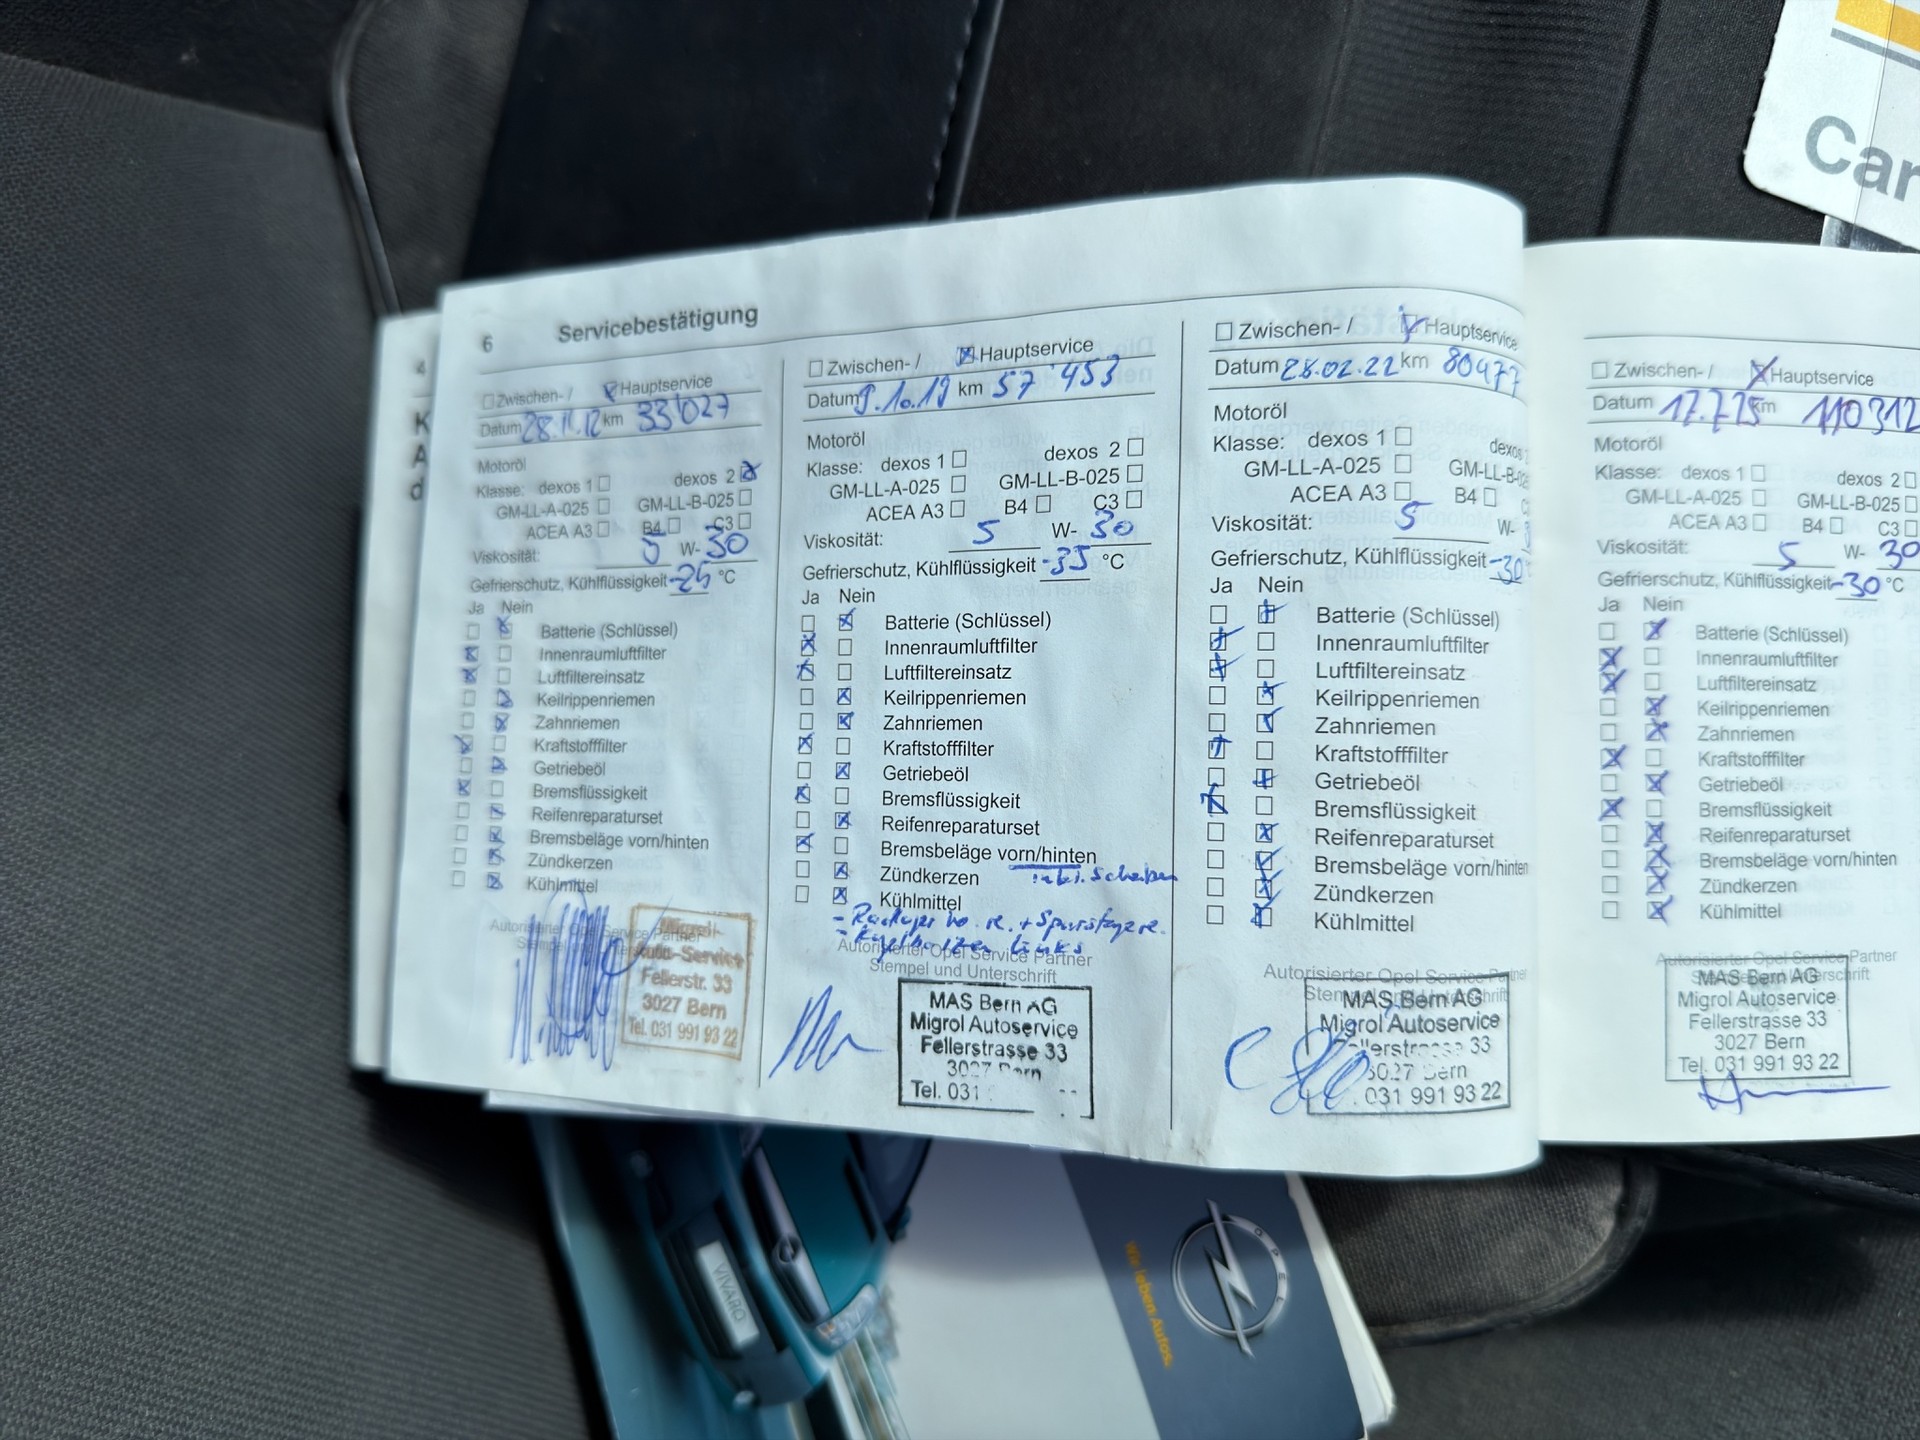 Car
4
K
A
d
6 Servicebestätigung
Zwischen- / Hauptservice
Datum 28.11.12 km 33'027
Motoröl
Klasse: dexos 1 dexos 2
GM-LL-A-025 GM-LL-B-025
ACEA A3 B4 C3
Viskosität: 5 W- 30
Gefrierschutz, Kühlflüssigkeit -25 °C
Ja Nein
Batterie (Schlüssel)
Innenraumluftfilter
Luftfiltereinsatz
Keilrippenriemen
Zahnriemen
Kraftstofffilter
Getriebeöl
Bremsflüssigkeit
Reifenreparaturset
Bremsbeläge vorn/hinten
Zündkerzen
Kühlmittel
Autorisierter Opel Service Partner
Migrol-
Auto-Service
Fellerstr. 33
3027 Bern
Tel. 031 991 93 22
Zwischen- / Hauptservice
Datum 9.10.19 km 57'453
Motoröl
Klasse: dexos 1 dexos 2
GM-LL-A-025 GM-LL-B-025
ACEA A3 B4 C3
Viskosität: 5 W- 30
Gefrierschutz, Kühlflüssigkeit -35 °C
Ja Nein
Batterie (Schlüssel)
Innenraumluftfilter
Luftfiltereinsatz
Keilrippenriemen
Zahnriemen
Kraftstofffilter
Getriebeöl
Bremsflüssigkeit
Reifenreparaturset
Bremsbeläge vorn/hinten
Zündkerzen inkl. Scheiben
Kühlmittel
- Radlager vo. re. + Spurstange re.
- links
Autorisierter Opel Service Partner
Stempel und Unterschrift
MAS Bern AG
Migrol Autoservice
Fellerstrasse 33
3027 Bern
Tel. 031
Zwischen- / Hauptservice
Datum 28.02.22 km 80477
Motoröl
Klasse: dexos 1 dexos
GM-LL-A-025 GM-LL-B-02
ACEA A3 B4 C
Viskosität: 5 W-
Gefrierschutz, Kühlflüssigkeit -30
Ja Nein
Batterie (Schlüssel)
Innenraumluftfilter
Luftfiltereinsatz
Keilrippenriemen
Zahnriemen
Kraftstofffilter
Getriebeöl
Bremsflüssigkeit
Reifenreparaturset
Bremsbeläge vorn/hinten
Zündkerzen
Kühlmittel
Autorisierter Opel Service Partner
MAS Bern AG
Migrol Autoservice
Fellerstrasse 33
3027 Bern
031 991 93 22
Zwischen- / Hauptservice
Datum 17.7.25 km 110312
Motoröl
Klasse: dexos 1 dexos 2
GM-LL-A-025 GM-LL-B-025
ACEA A3 B4 C3
Viskosität: 5 W- 30
Gefrierschutz, Kühlflüssigkeit -30 °C
Ja Nein
Batterie (Schlüssel)
Innenraumluftfilter
Luftfiltereinsatz
Keilrippenriemen
Zahnriemen
Kraftstofffilter
Getriebeöl
Bremsflüssigkeit
Reifenreparaturset
Bremsbeläge vorn/hinten
Zündkerzen
Kühlmittel
Autorisierter Opel Service Partner
MAS Bern AG
Migrol Autoservice
Fellerstrasse 33
3027 Bern
Tel. 031 991 93 22
VIVARO
Wir leben Autos.
OPEL